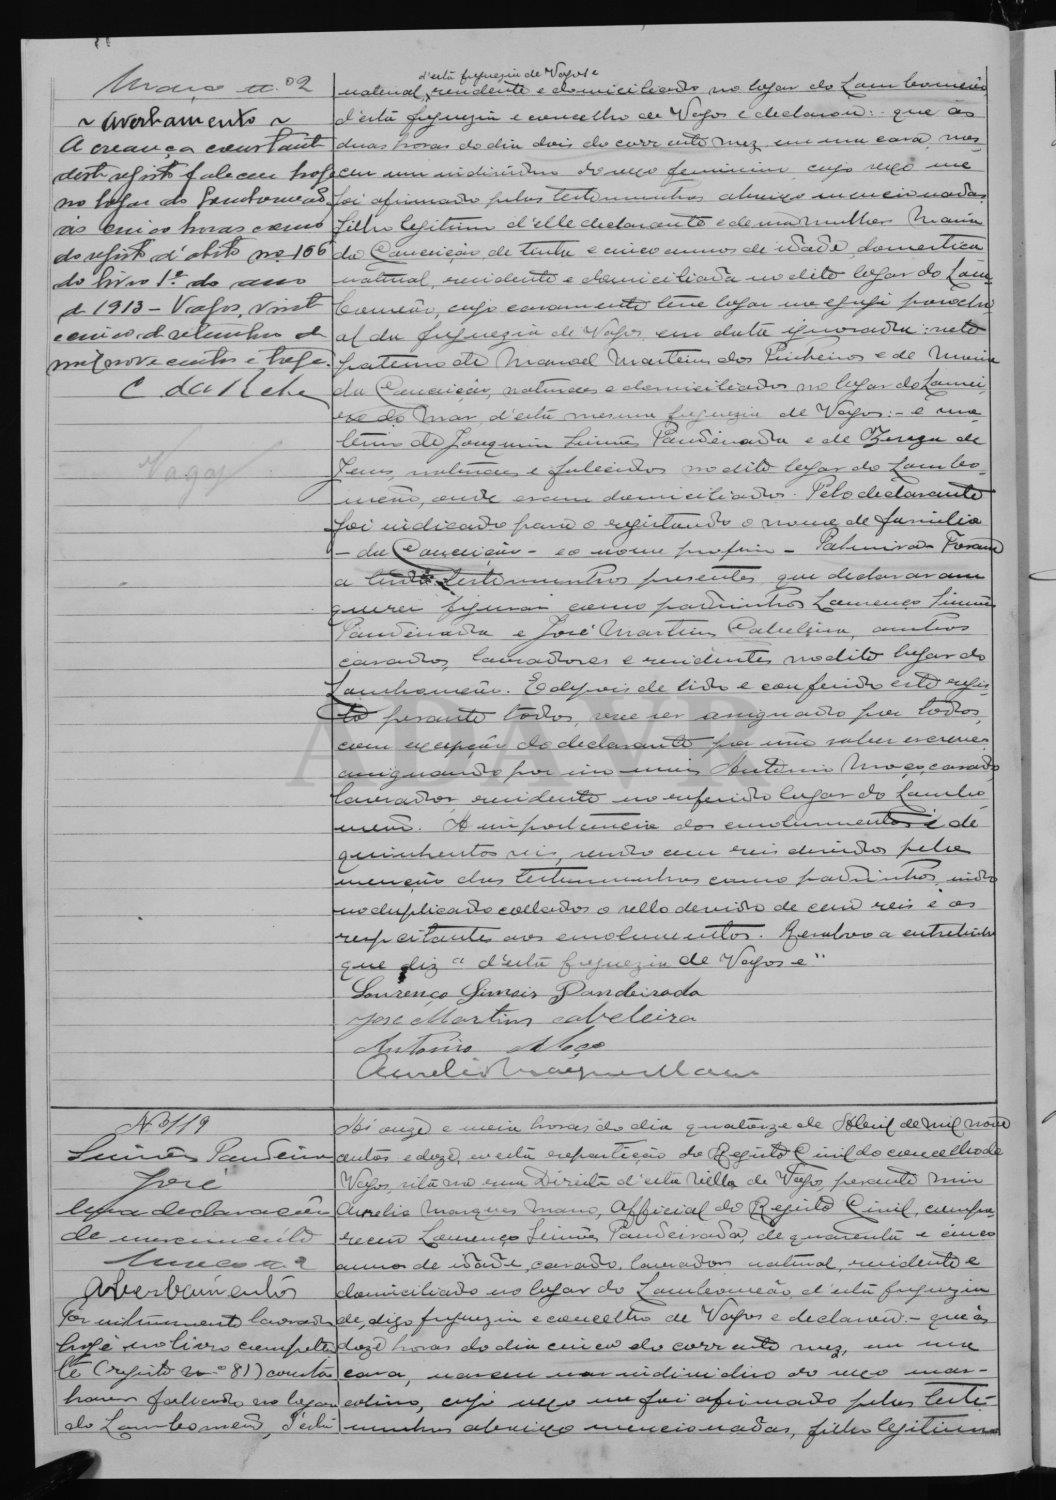 Maço n.º 2
~ Averbamento ~
A creança constante
deste registo faleceu hoje
no logar do Lombomeão
ás cinco horas como
do registo d'obito n.º 166
do livro 1.º do ano
de 1913 - Vagos, vinte
e cinco de setembro de
mil nove centos e treze.
Vagos
d'esta freguezia de Vagos e
natural, residente e domiciliado no logar do Lombomeão,
d'esta freguezia e concelho de Vagos e declarou: que ás
duas horas do dia dois do corrente mez, em uma casa, nas-
ceu um individuo do sexo feminino, cujo sexo me
foi afirmado pelas testemunhas abaixo mencionadas,
filho legitimo d'elle declarante e de sua mulher Maria
da Conceição, de trinta e cinco annos de idade, domestica,
natural, residente e domiciliada no dito logar do Lom-
bomeão, cujo casamento teve logar na egreja parochi-
al da freguezia de Vagos, em data ignorada: neto
paterno de Manoel Martins dos Pinheiros e de Maria
da Conceição, naturaes e domiciliados no logar do Lamei-
ro do Mar, d'esta mesma freguezia de Vagos: - e ma-
terno de Joaquim Simões Pandeirada e de Thereza de
Jesus, naturaes e falecidos no dito logar do Lombo-
meão, onde eram domiciliados. Pelo declarante
foi indicado para o registando o nome de familia
- da Conceição - e o nome proprio - Palmira. Foram
a tudo testemunhas presentes, que declararam
querer figurar como padrinhos Lourenço Simões
Pandeirada e José Martins Cabeleira, ambos
casados, lavradores e residentes no dito logar do
Lombomeão. E depois de lido e conferido este regis-
to perante todos, vae ser assignado por todos,
com excepção do declarante por não saber escrever,
assignando por isso mais Antonio Moço, casado,
lavrador, residente no referido logar do Lombo-
meão. A importancia dos emolumentos é de
quinhentos reis, sendo cem reis devidos pela
menção das testemunhas como padrinhos, indo
no duplicado collados o sello devido de cem reis e os
respeitantes aos emolumentos. Resalvo a entrelinha
que diz "d'esta freguezia de Vagos e"
Lourenço Simois Pandeirada
José Martins cabeleira
António Moço
Aurelio Marques Mano
Nº 119
Simões Pandeirada
José
de nascimento
Maço n.º 2
Averbamentos
Por instrumento lavrado
hoje no livro competen-
te (registo n.º 81) consta
haver falecido no logar
do Lombomeão, d'esta
Ás onze e meia horas do dia quatorze de Abril de mil nove
centos e doze, n'esta repartição do Registo Civil do concelho de
Vagos, sita na rua Direita d'esta Villa de Vagos, perante mim
Aurelio Marques Mano, Official do Registo Civil, compa-
receu Lourenço Simões Pandeirada, de quarenta e cinco
annos de idade, casado, lavrador, natural, residente e
domiciliado no logar do Lombomeão, d'esta freguezia
de, digo freguezia e concelho de Vagos e declarou: - que ás
doze horas do dia cinco do corrente mez, em uma
casa, nasceu um individuo do sexo mas-
culino, cujo sexo me foi afirmado pelas teste-
munhas abaixo mencionadas, filho legitimo